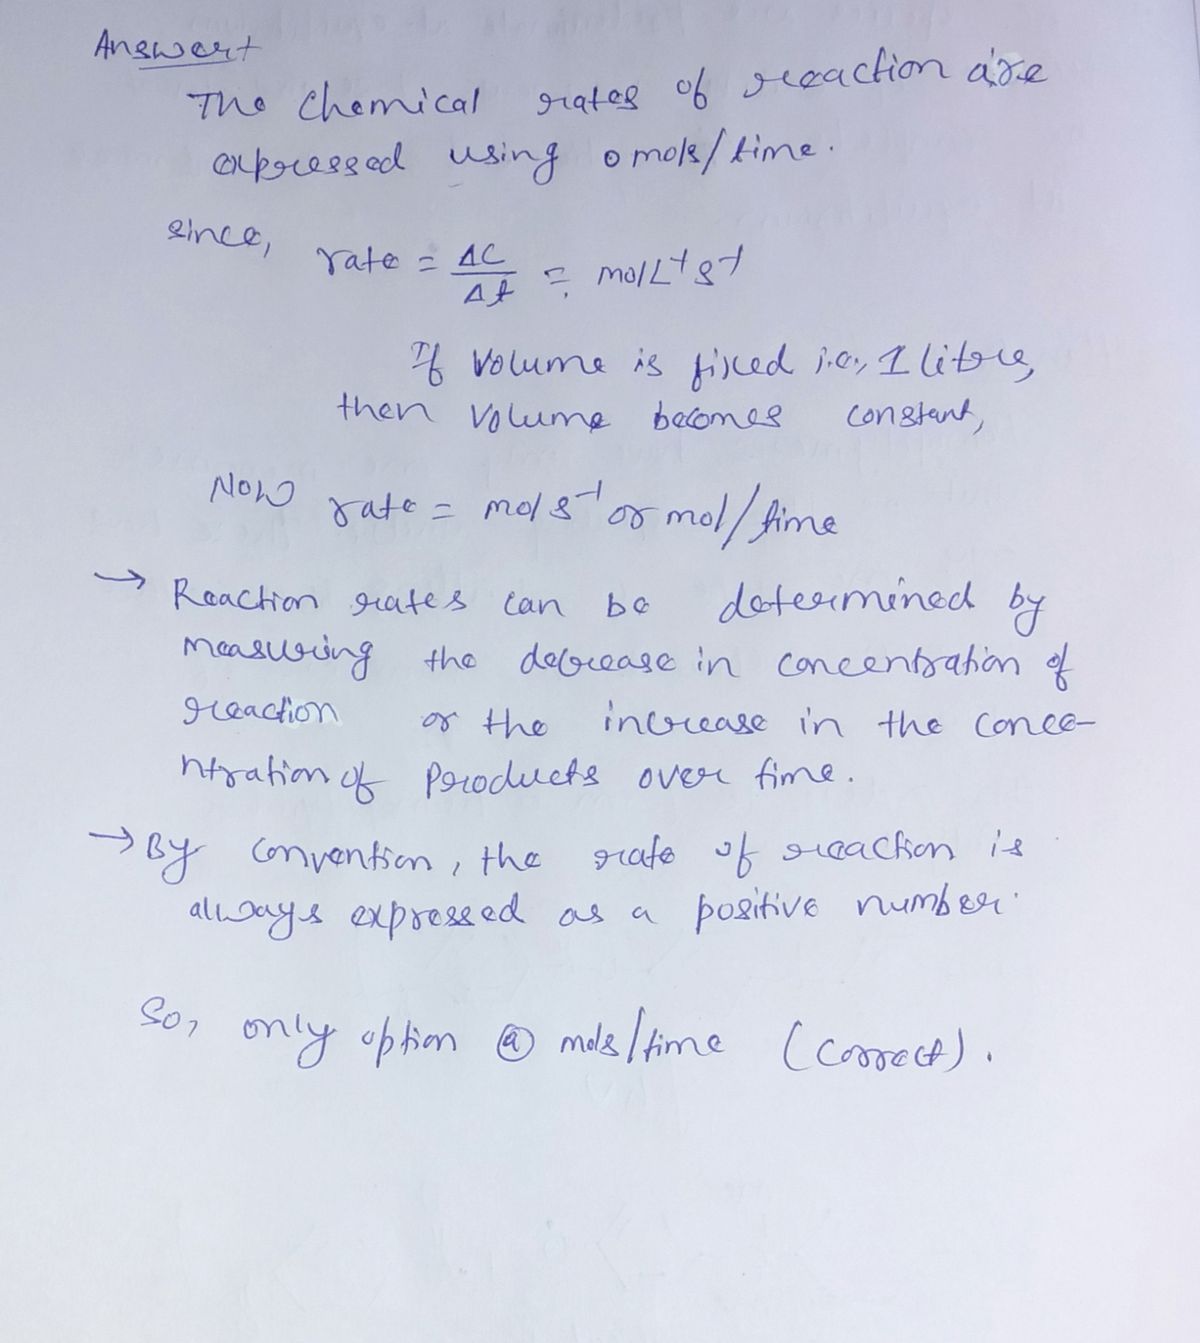 Answer:-
The Chemical rates of reaction are
expressed using o mols/time.
since, rate = ΔC/Δt = mol L⁻¹ s⁻¹
If Volume is fixed i.e., 1 litre,
then Volume becomes constant,
Now rate = mol s⁻¹ or mol/time
→ Reaction rates can be determined by
measuring the decrease in concentration of
reaction or the increase in the conce-
ntration of Products over time.
→ By convention, the rate of reaction is
always expressed as a positive number.
So, only option ⓐ mols/time (correct).